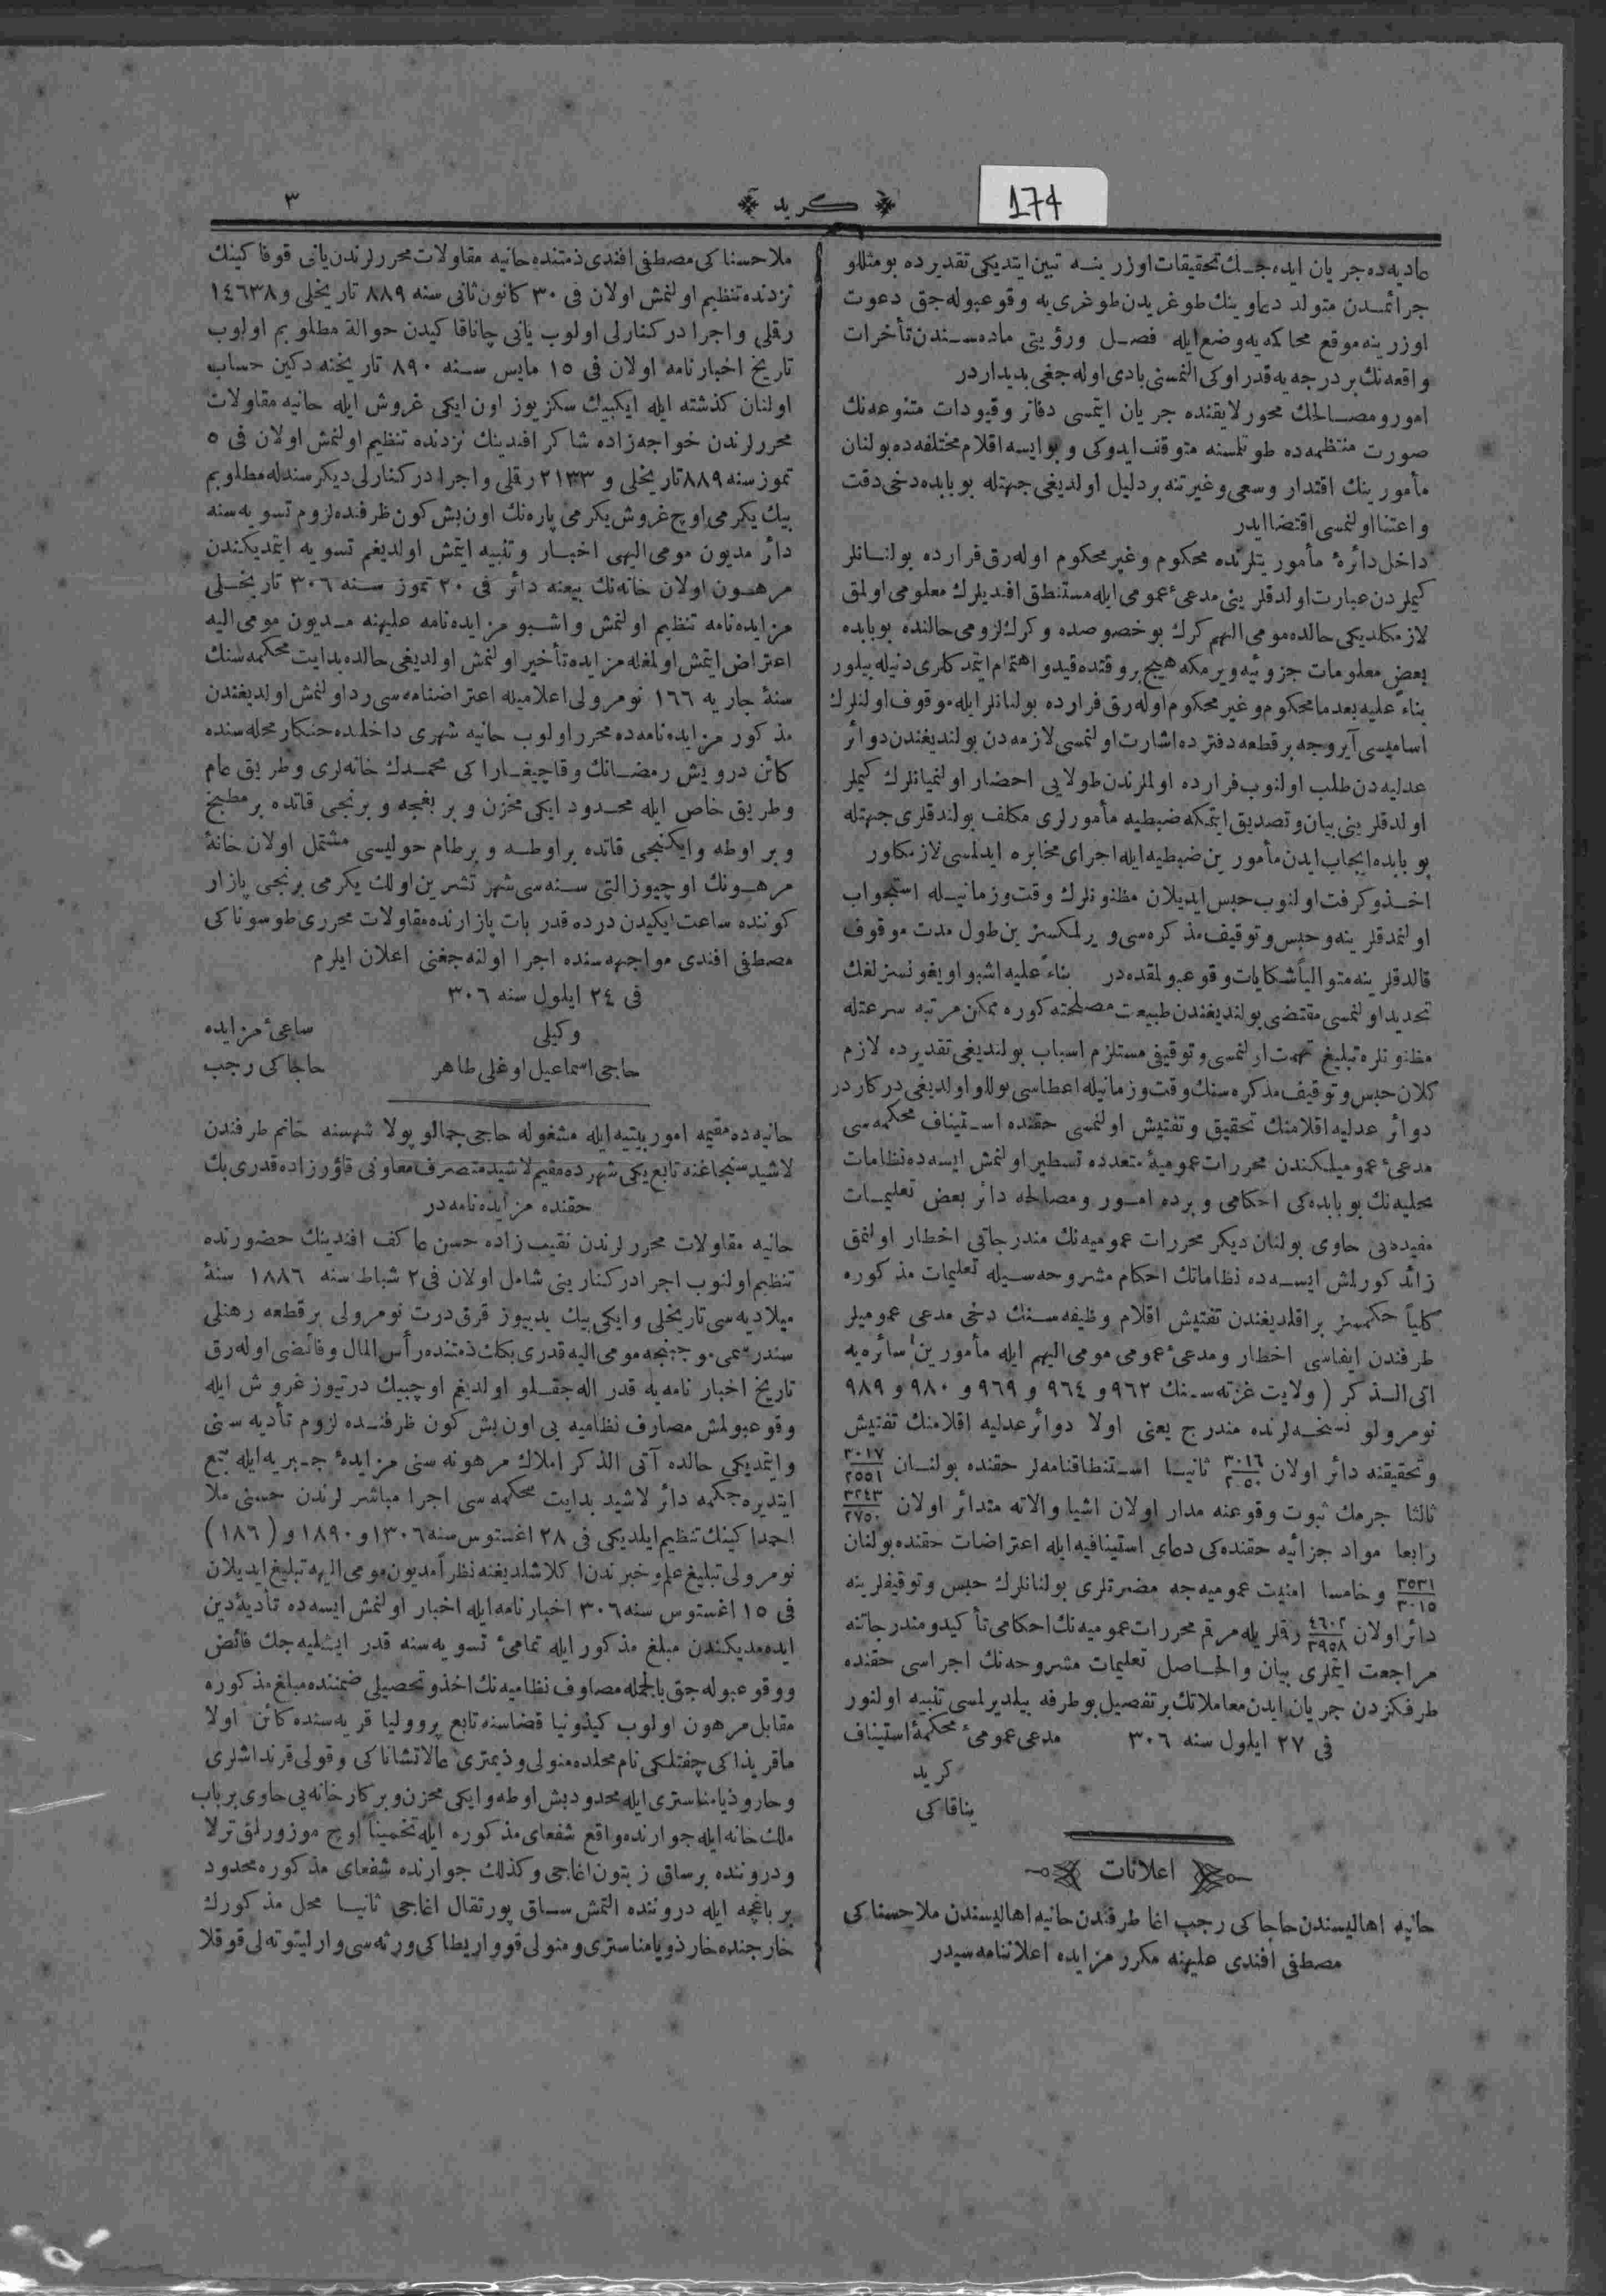 174
﴿ كريد ﴾
٣
عاديه‌ده جريان ايده‌جك تحقيقات اوزرينه تبين ايتديكى تقديرده بو مثللو
جرائمدن متولد دعاوينك طوغريدن طوغرى‌يه وقوعبوله‌جق دعوت
اوزرينه موقع محاكمه‌يه وضع ايله فصل ورؤيتى ماده‌سندن تأخرات
واقعه‌نك بر درجه‌يه قدر اوكى النمسنى بادى اوله‌جغى بديداردر
امور ومصالحك محور لايقنده جريان ايتمسى دفاتر وقيودات متنوعه‌نك
صورت منتظمه‌ده طوتلمسنه متوقف ايدوكى و بو ايسه اقلام مختلفه‌ده بولنان
مأمورينك اقتدار وسعى وغيرتنه بر دليل اولديغى جهتله بو بابده دخى دقت
واعتنا اولنمسى اقتضا ايدر
داخل دائرهٔ مأموريتلرنده محكوم وغير محكوم اوله‌رق فرارده بولنانلر
كيملردن عبارت اولدقلرينى مدعئ عمومى ايله مستنطق افنديلرك معلومى اولمق
لازمكلديكى حالده مومى اليهم كرك بو خصوصده وكرك لزومى حالنده بو بابده
بعض معلومات جزوئيه ويرمكه هيچ بر وقتده قيد و اهتمام ايتمدكلرى دنيله بيلور
بناءً عليه بعدما محكوم وغير محكوم اوله‌رق فرارده بولنانلر ايله موقوف اولنلرك
اساميسى آيروجه بر قطعه دفترده اشارت اولنمسى لازمه‌دن بولنديغندن دوائر
عدليه‌دن طلب اولنوب فرارده اولملرندن طولايى احضار اولنميانلرك كيملر
اولدقلرينى بيان و تصديق ايتمكه ضبطيه مأمورلرى مكلف بولندقلرى جهتله
بو بابده ايجاب ايدن مأمورين ضبطيه ايله اجراى مخابره ايدلمسى لازمكلور
اخذ وكرفت اولنوب حبس ايديلان مظنونلرك وقت وزمانيله استجواب
اولنمدقلرينه وحبس وتوقيف مذكره‌سى ويرلمكسزين طول مدت موقوف
قالدقلرينه متوالياً شكايات وقوعبولمقده‌در بناءً عليه اشبو اويغونسزلغك
تحديد اولنمسى مقتضى بولنديغندن طبيعت مصلحته كوره ممكن مرتبه سرعتله
مظنونلره تبليغ تهمت اولنمسى وتوقيفى مستلزم اسباب بولنديغى تقديرده لازم
كلان حبس وتوقيف مذكره‌سنك وقت وزمانيله اعطاسى بوللو اولديغى دركاردر
دوائر عدليه اقلامنك تحقيق وتفتيش اولنمسى حقنده استيناف محكمه‌سى
مدعئ عموميلكندن محررات عموميهٔ متعدده تسطير اولنمش ايسه‌ده نظامات
محليه‌نك بو بابده‌كى احكامى و برده امور ومصالحه دائر بعض تعليمات
مفيده‌يى حاوى بولنان ديكر محررات عموميه‌نك مندرجاتى اخطار اولنمق
زائد كورلمش ايسه‌ده نظاماتك احكام مشروحه‌سيله تعليمات مذكوره
كلياً حكمسز براقلديغندن تفتيش اقلام وظيفه‌سنك دخى مدعى عموميلر
طرفندن ايفاسى اخطار ومدعئ عمومى مومى اليهم ايله مأمورين سائره‌يه
اتى الذكر ( ولايت غزته‌سنك ٩٦٢ و ٩٦٤ و ٩٦٩ و ٩٨٠ و ٩٨٩
نومرولو نسخه‌لرنده مندرج يعنى اولا دوائر عدليه اقلامنك تفتيش
وتحقيقنه دائر اولان ٣٠١٦/٢٠٥٠ ثانيا استنطاقنامه‌لر حقنده بولنان ٣٠١٧/٢٥٥١
ثالثا جرمك ثبوت وقوعنه مدار اولان اشيا والاته متدائر اولان ٣٢٤٣/٢٧٥٠
رابعا مواد جزائيه حقنده‌كى دعاى استينافيه ايله اعتراضات حقنده بولنان
٣٥٣١/٣٠١٥ وخامسا امنيت عموميه‌جه مضرتلرى بولنانلرك حبس وتوقيفلرينه
دائر اولان ٤٦٠٢/٣٩٥٨ رقلريله مرقم محررات عموميه‌نك احكامى تأكيد ومندرجاتنه
مراجعت ايتملرى بيان والحاصل تعليمات مشروحه‌نك اجراسى حقنده
طرفكزدن جريان ايدن معاملاتك بر تفصيل بو طرفه بيلديرلمسى تنبيه اولنور
فى ٢٧ ايلول سنه ٣٠٦ مدعى عمومئ محكمهٔ استيناف
كريد
يناقاكى
اعلانات
حانيه اهاليسندن حاجاكى رجب اغا طرفندن حانيه اهاليسندن ملا حسناكى
مصطفى افندى عليهنه مكرر مزايده اعلاننامه سيدر
ملا حسناكى مصطفى افندى ذمتنده حانيه مقاولات محررلرندن يانى قوفاكينك
نزدنده تنظيم اولنمش اولان فى ٣٠ كانون ثانى سنه ٨٨٩ تاريخلى و ١٤٦٣٨
رقلى واجرا دركنارلى اولوب يانى چاناقاكيدن حوالة مطلوبم اولوب
تاريخ اخبارنامه اولان فى ١٥ مايس سنه ٨٩٠ تاريخنه دكين حساب
اولنان كذشته ايله ايكبيك سكزيوز اون ايكى غروش ايله حانيه مقاولات
محررلرندن خواجه‌زاده شاكر افندينك نزدنده تنظيم اولنمش اولان فى ٥
تموز سنه ٨٨٩ تاريخلى و ٢١٣٣ رقلى واجرا دركنارلى ديكر سندله مطلوبم
بيك يكرمى اوچ غروش يكرمى پاره‌نك اون بش كون ظرفنده لزوم تسويه‌سنه
دائر مديون مومى اليهى اخبار و تنبيه ايتمش اولديغم تسويه ايتمديكندن
مرهون اولان خانه‌نك بيعنه دائر فى ٢٠ تموز سنه ٣٠٦ تاريخلى
مزايده‌نامه تنظيم اولنمش واشبو مزايده‌نامه عليهنه مديون مومى اليه
اعتراض ايتمش اولمغله مزايده تأخير اولنمش اولديغى حالده بدايت محكمه‌سنك
سنهٔ جاريه ١٦٦ نومرولى اعلاميله اعتراضنامه‌سى رد اولنمش اولديغندن
مذكور مزايده‌نامه‌ده محرر اولوب حانيه شهرى داخلنده حنكار محله‌سنده
كائن درويش رمضانك وقاچيغاراكى محمدك خانه‌لرى وطريق عام
وطريق خاص ايله محدود ايكى مخزن و بر بغچه و برنجى قاتده بر مطبخ
و بر اوطه وايكنجى قاتده بر اوطه و برطام حوليسى مشتمل اولان خانهٔ
مرهونك اوچيوزالتى سنه‌سى شهر تشرين اولك يكرمى برنجى پازار
كوننده ساعت ايكيدن درده قدر بات پازارنده مقاولات محررى طوسوناكى
مصطفى افندى مواجهه‌سنده اجرا اولنه‌جغنى اعلان ايلرم
فى ٢٤ ايلول سنه ٣٠٦
وكيلى ساعئ مزايده
حاجى اسماعيل اوغلى طاهر حاجاكى رجب
حانيه‌ده مقيمه امور بيتيه ايله مشغوله حاجى جمالو پولا شهسنه خانم طرفندن
لاشيد سنجاغنه تابع يكى شهرده مقيم لاشيد متصرف معاونى قاؤرزاده قدرى بك
حقنده مزايده‌نامه‌در
حانيه مقاولات محررلرندن نقيب‌زاده حسن عاكف افندينك حضورنده
تنظيم اولنوب اجرا دركنارينى شامل اولان فى ٢ شباط سنه ١٨٨٦ سنهٔ
ميلاديه‌سى تاريخلى وايكى بيك يديبوز قرق درت نومرولى بر قطعه رهنلى
سند رسمى موجبنجه مومى اليه قدرى بكك ذمتنده رأس المال وفائضى اوله‌رق
تاريخ اخبارنامه‌يه قدر اله‌جقلو اولديغم اوچبيك درتيوز غروش ايله
وقوعبولمش مصارف نظاميه‌يى اون بش كون ظرفنده لزوم تأديه‌سنى
وايتمديكى حالده آتى الذكر املاك مرهونه‌سنى مزايدهٔ جبريه ايله بيع
ايتديره‌جكمه دائر لاشيد بدايت محكمه‌سى اجرا مباشرلرندن حسنى ملا
احمداكينك تنظيم ايلديكى فى ٢٨ اغستوس سنه ١٣٠٦ و ١٨٩٠ و (١٨٦)
نومرولى تبليغ علم و خبرندن اكلاشلديغنه نظراً مديون مومى اليهه تبليغ ايديلان
فى ١٥ اغستوس سنه ٣٠٦ اخبارنامه ايله اخبار اولنمش ايسه‌ده تأديه‌دين
ايده‌مديكندن مبلغ مذكور ايله تمامئ تسويه‌سنه قدر ايشليه‌جك فائض
ووقوعبوله‌جق بالجمله مصاوف نظاميه‌نك اخذ وتحصيلى ضمننده مبلغ مذكوره
مقابل مرهون اولوب كيذونيا قضاسنه تابع پرووليا قريه‌سنده كائن اولا
ماقريذاكى چفتلكى نام محلده منولى وذيمترى عالاتشاناكى وقولى قرنداشلرى
وحارو ذيامناسترى ايله محدود بش اوطه و ايكى مخزن و بر كارخانه‌يى حاوى بر باب
ملك خانه ايله جوارنده واقع شفعاى مذكوره ايله تخميناً اوچ موزورلق ترلا
ودروننده برساق زيتون اغاجى وكذلك جوارنده شفعاى مذكوره محدود
بر باغچه ايله دروننده التمش ساق پورتقال اغاجى ثانيا محل مذكورك
خارجنده خارذويامناسترى ومنولى قوواريطاكى ورثه‌سى وارليتوته‌لى قوقلا